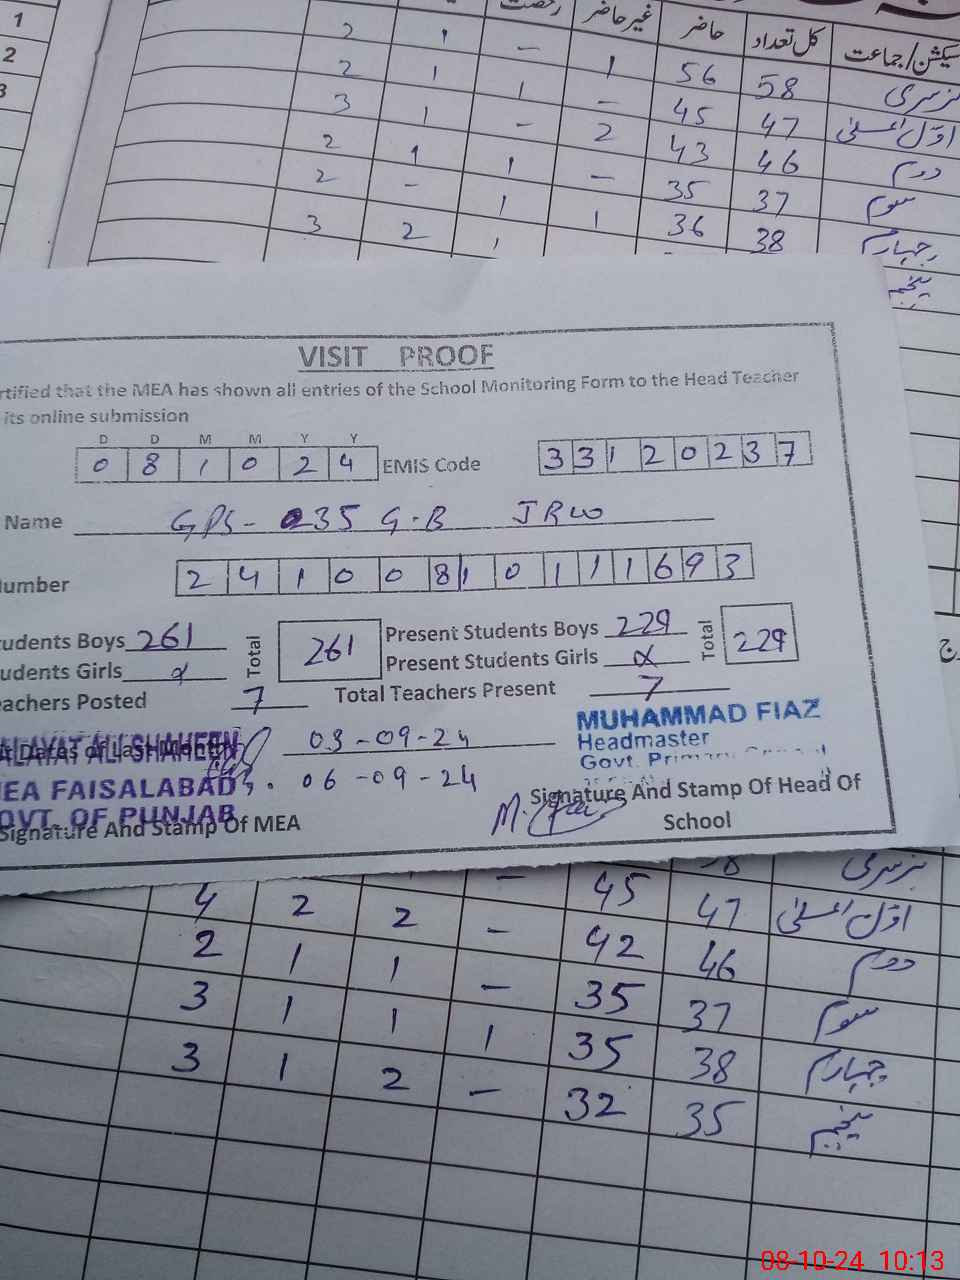 1
2
3
سیکشن/جماعت کل تعداد حاضر غیر حاضر رخصت
نرسری 58 56 1 – 1 2
اوّل اعلیٰ 47 45 – 1 1 2
دوم 46 43 2 – 1 3
سوم 37 35 – 1 1 2
چہارم 38 36 1 1 – 2
پنجم 1 2 3
VISIT PROOF
rtified that the MEA has shown all entries of the School Monitoring Form to the Head Teacher
its online submission
D D M M Y Y
0 8 1 0 2 4 EMIS Code 3 3 1 2 0 2 3 7
Name GPS- 235 G.B JRW
umber 2 4 1 0 0 8 1 0 1 1 1 6 9 3
tudents Boys 261 Total 261 Present Students Boys 229 Total 229
udents Girls Present Students Girls
eachers Posted 7 Total Teachers Present 7
ALAYAT ALI SHAHEEN
Dates of Last Month 03-09-24
MUHAMMAD FIAZ
Headmaster
Govt. Primary
EA FAISALABAD 06-09-24
OVT. OF PUNJAB
Signature And Stamp Of MEA
Signature And Stamp Of Head Of
School
نرسری 8 45 –
اوّل اعلیٰ 47 42 – 2 2 4
دوم 46 35 – 1 1 2
سوم 37 35 1 1 1 3
چہارم 38 32 – 2 1 3
پنجم 35
08-10-24 10:13